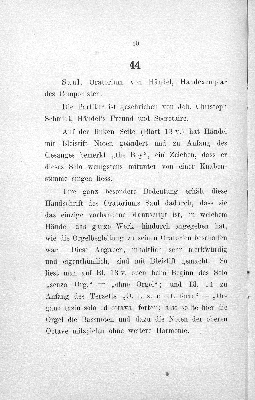 10
44
Saul, Oratorium von Händel, Handexemplar
des Componisten.
Die Partitur ist geschrieben von Joh. Christoph
Schmidt, Händel's Freund und Secretaire.
Auf der linken Seite (Blatt 13 v.) hat Händel
mit Bleistift Noten geändert und zu Anfang des
Gesanges bemerkt „the Boy“, ein Zeichen, dass er
dieses Solo wenigstens mitunter von einer Knaben-
stimme singen liess.
Eine ganz besondere Bedeutung erhält diese
Handschrift des Oratoriums Saul dadurch, dass sie
das einzige vorhandene Manuscript ist, in welchem
Händel das ganze Werk hindurch angegeben hat,
wie die Orgelbegleitung zu seinen Oratorien beschaffen
war. Diese Angaben, mitunter sehr merkwürdig
und eigenthümlich, sind mit Bleistift gemacht. So
liest man auf Bl. 13 v. oben beim Beginn des Solo
„senza Org.“ = „ohne Orgel“; und Bl. 14 zu
Anfang des Terzetts =
also sollte hier die
Orgel die Bassnoten und dazu die Noten der oberen
Octave mitspielen ohne weitere Harmonie.